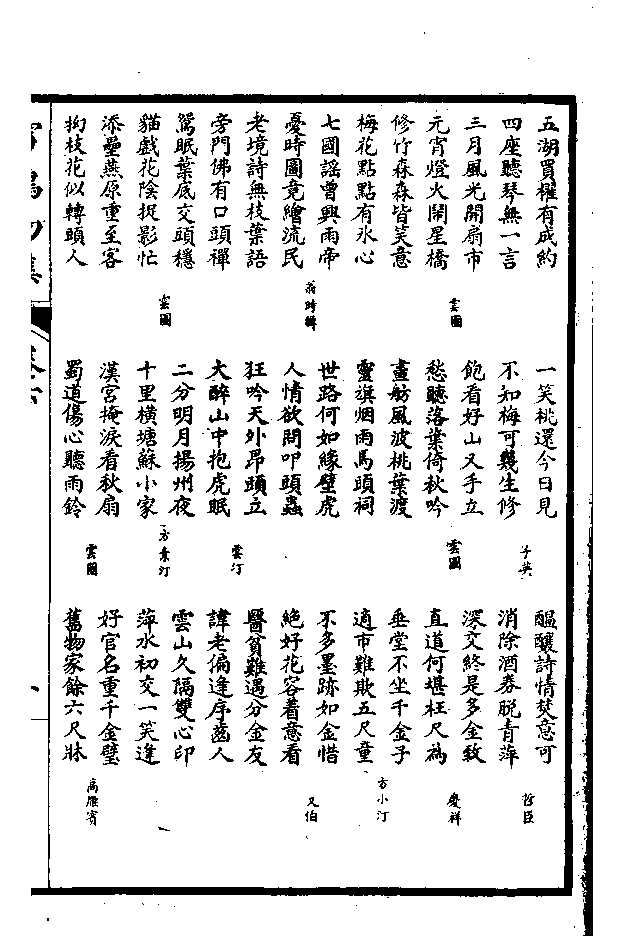 五湖買櫂有成約
四座聽琴無一言
三月風光開扇市
元宵燈火鬧星橋
雲圃
修竹森森皆笑意
梅花點點有冰心
七國謠曾興雨帝
憂時圖竟繪流民
翁時輯
老境詩無枝葉語
旁門佛有口頭禪
鴛眠葉底交頭穩
貓戲花陰捉影忙
雲圃
添壘燕原重至客
拗枝花似轉頭人
一笑桃還今日見
不知梅可幾生修
子英
飽看好山又手立
愁聽落葉倚秋吟
雲圃
畫舫風波桃葉渡
靈旗烟雨馬頭祠
世路何如緣壁虎
人情欲問叩頭蟲
狂吟天外昂頭立
大醉山中抱虎眠
雲汀
二分明月揚州夜
十里橫塘蘇小家
方素汀
漢宮掩淚看秋扇
蜀道傷心聽雨鈴
雲圃
醞釀詩情焚意可
消除酒券脫青萍
哲臣
深文終是多金致
直道何堪枉尺為
慶祥
垂堂不坐千金子
適市難欺五尺童
方小汀
不多墨跡如金惜
絕好花容着意看
又伯
醫貧難遇分金友
諱老偏逢序齒人
雲山久隔雙心印
萍水初交一笑逢
好官名重千金璧
舊物家餘六尺牀
高雁賓